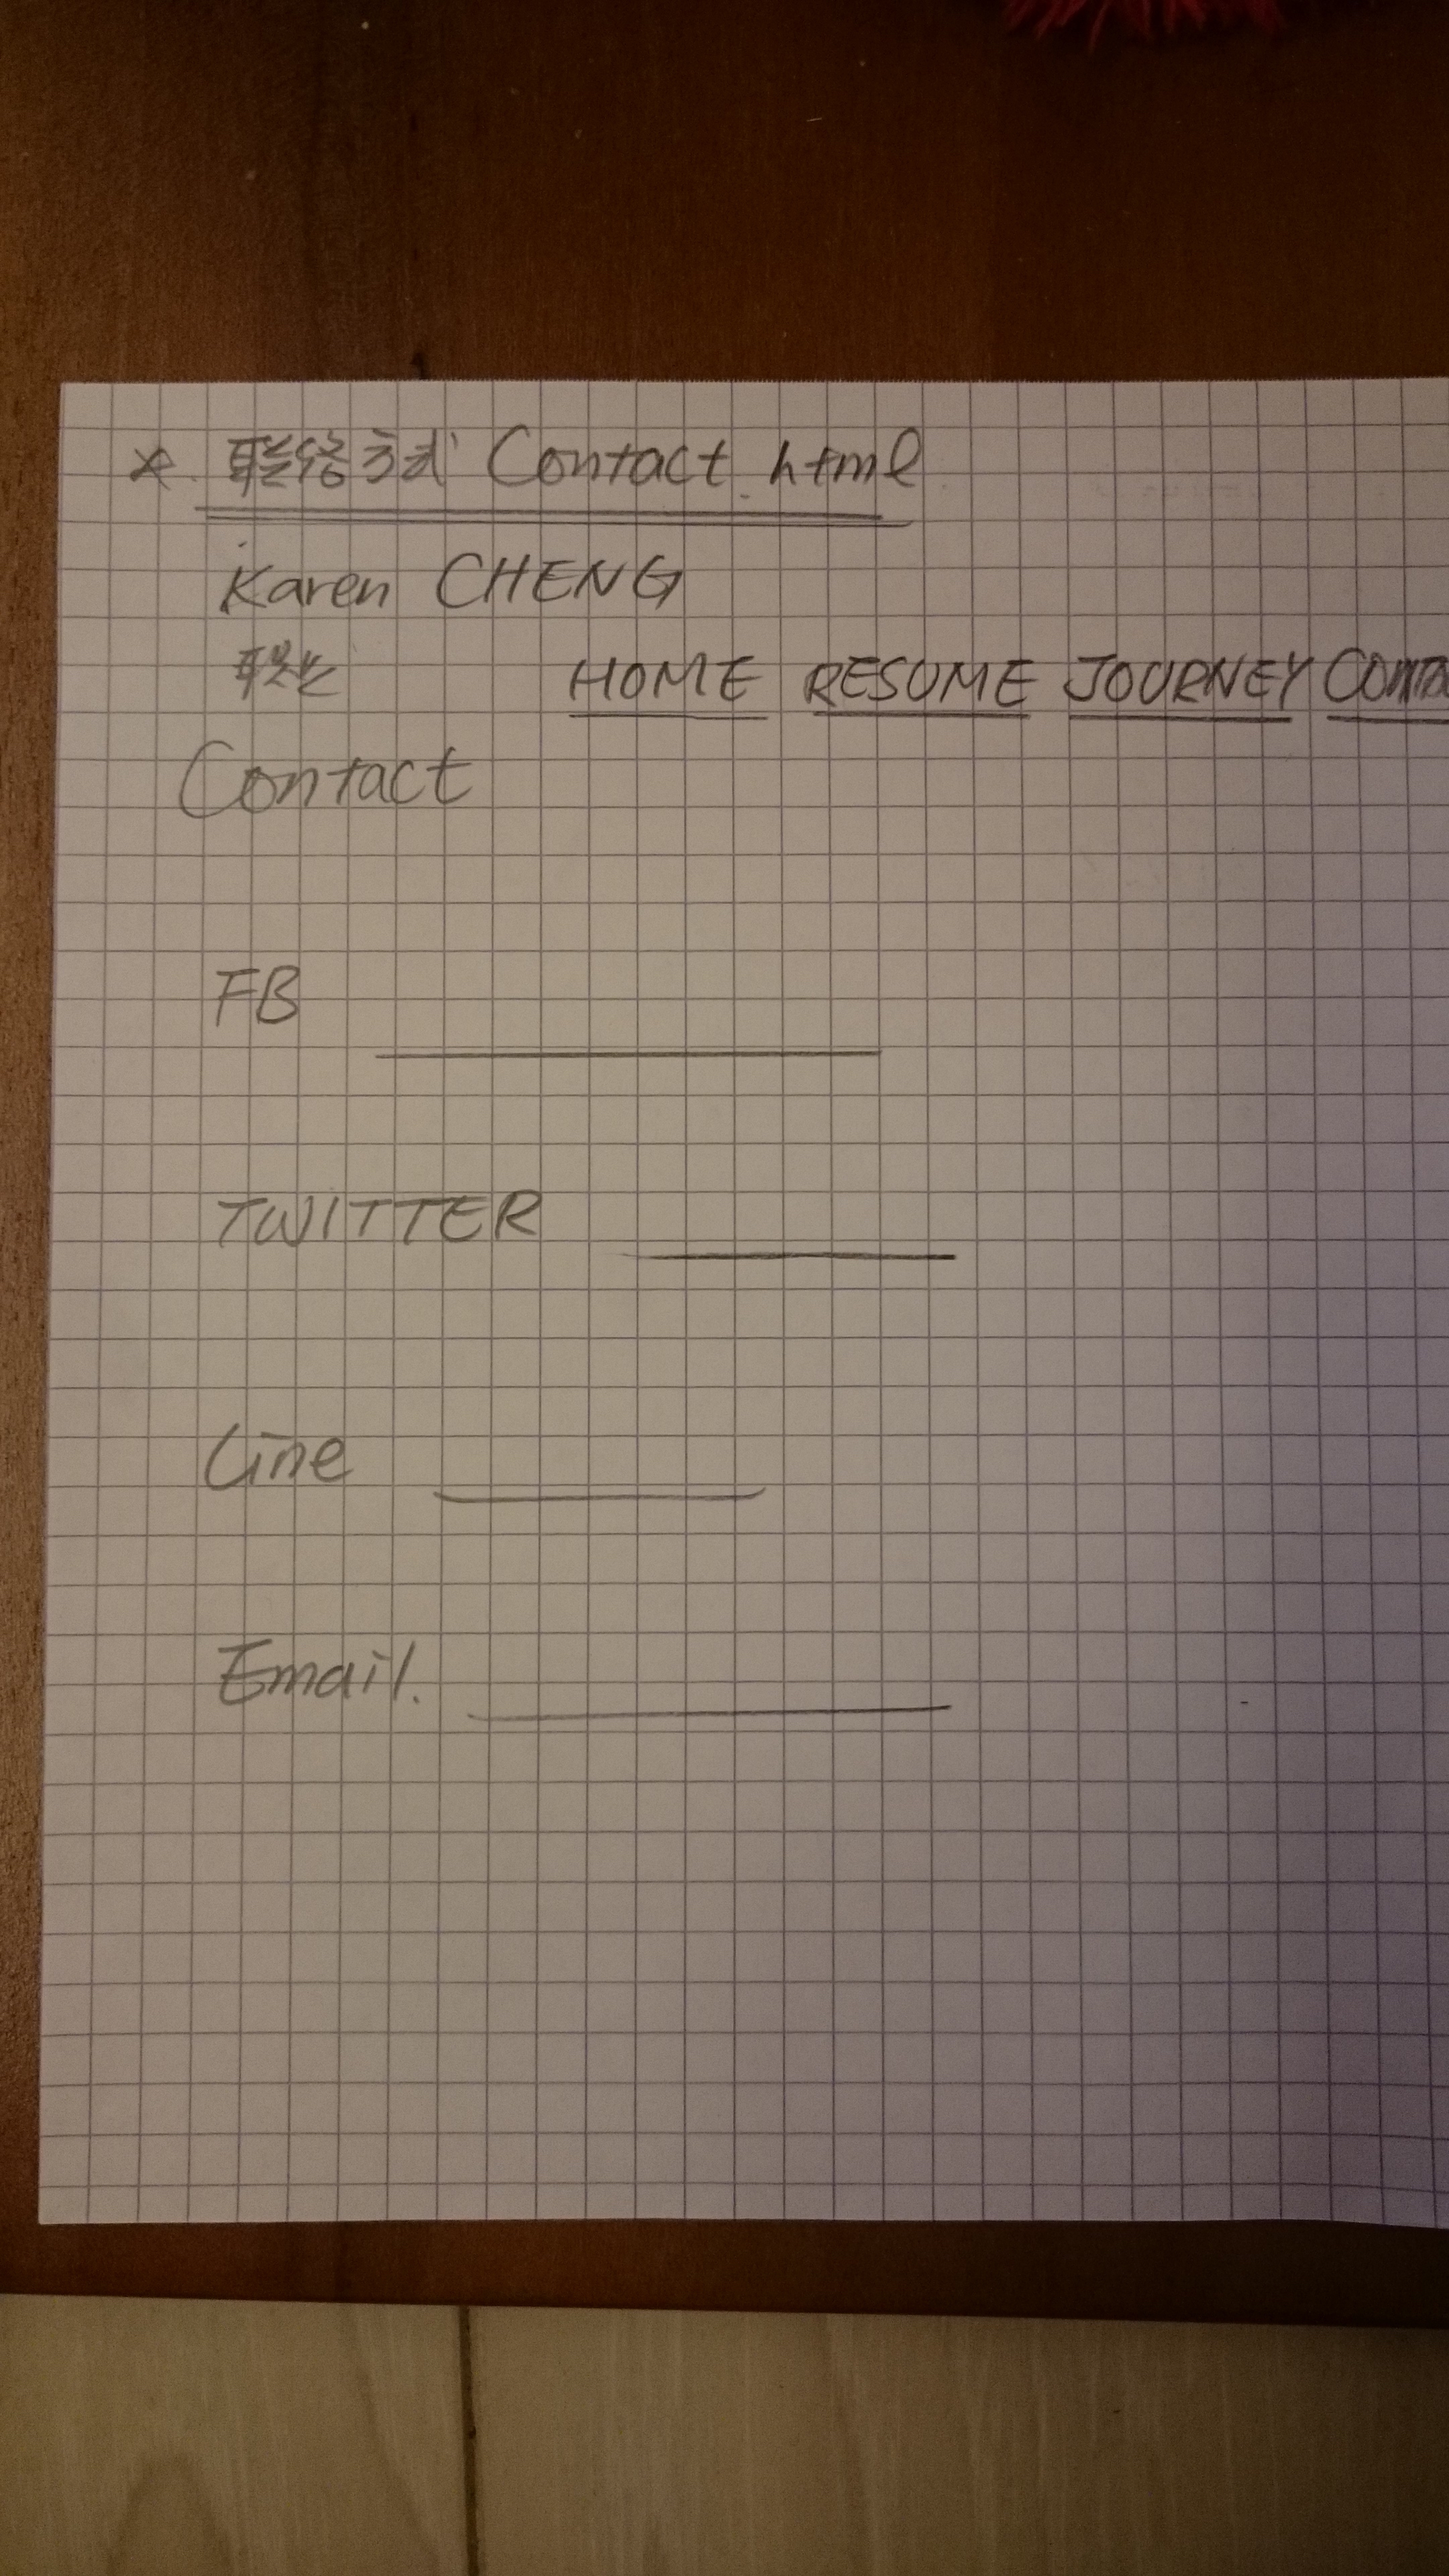 * 聯络方式 Contact.html
Karen CHENG
HOME RESUME JOURNEY
Contact
FB
TWITTER
Line
Email.